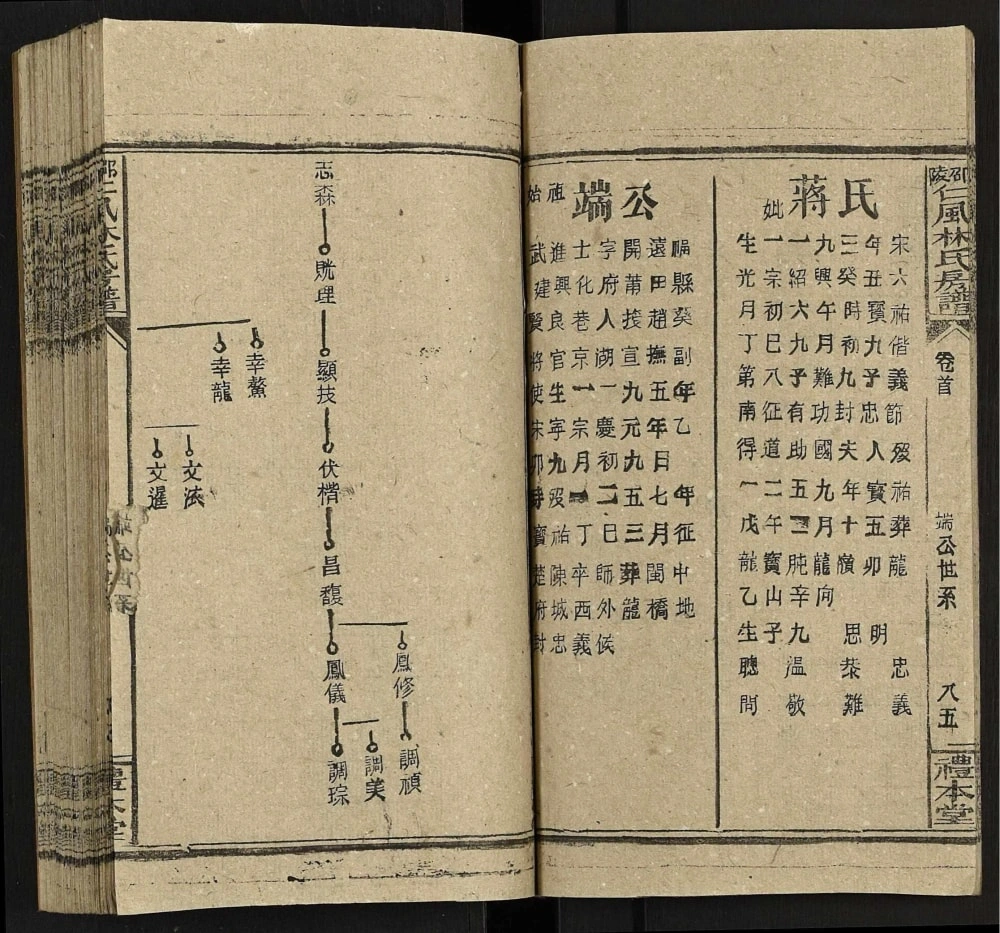 邵陵仁風林氏房譜
卷首
端公世系
八五
禮本堂
妣
蔣氏
宋六祐偕義節歿祐葬龍 忠義
年丑寶九子忠人寶五卯 明
三癸時初九封夫年十嶺 思恭難
九興午月難功國九月龍向
一紹六九子有助五三肫辛九温敬
一宗初巳八征道二午寶山子
生光月丁第南得一戊龍乙生聰問
始祖
端公
福縣葵副年乙年征中地
遠田趙撫五年日七月閩橋
開莆援宣九元九五三葬龍
字府人湖一慶初二巳師外侯
士化巷京一宗月一丁卒西義
進興良官生寧九歿祐陳城忠
武建賢將使宋卯時寶楚府封
志森
貺理
顯技
伏楷
昌馥
鳳修
鳳儀
調禎
調美
調琮
幸鰲
幸龍
文法
文暹